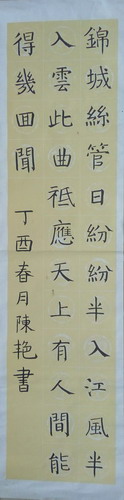 錦城絲管日紛紛半入江風半
入雲此曲祗應天上有人間能
得幾回聞 丁酉春月陳艳書